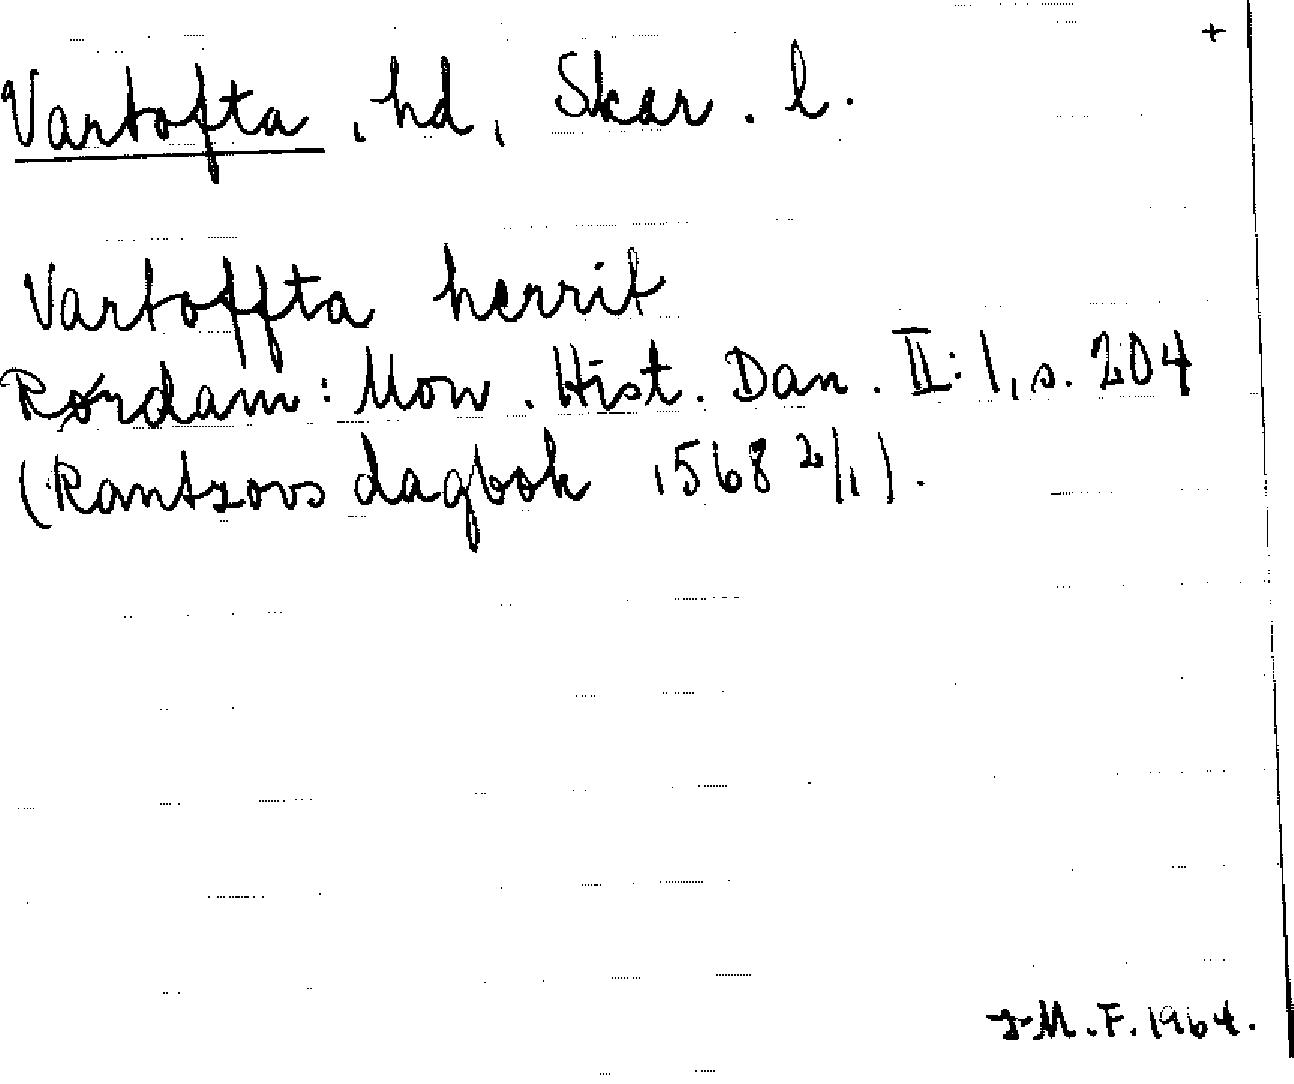 +
Vartofta, hd, Skar. l.
Vartoffta herrit
Rørdam: Mon. Hist. Dan. II:1, s. 204
(Rantzovs dagbok 1568 2/1).
J-M.F. 1964.